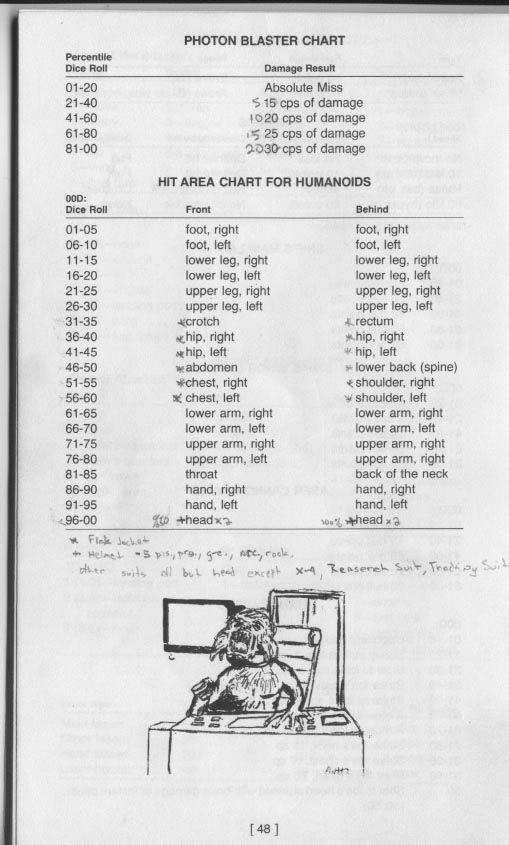 PHOTON BLASTER CHART
Percentile
Dice Roll Damage Result
01-20 Absolute Miss
21-40 5 15 cps of damage
41-60 10 20 cps of damage
61-80 15 25 cps of damage
81-00 20 30 cps of damage
HIT AREA CHART FOR HUMANOIDS
00D:
Dice Roll Front Behind
01-05 foot, right foot, right
06-10 foot, left foot, left
11-15 lower leg, right lower leg, right
16-20 lower leg, left lower leg, left
21-25 upper leg, right upper leg, right
26-30 upper leg, left upper leg, left
31-35 *crotch *rectum
36-40 *hip, right *hip, right
41-45 *hip, left *hip, left
46-50 *abdomen *lower back (spine)
51-55 *chest, right *shoulder, right
56-60 *chest, left *shoulder, left
61-65 lower arm, right lower arm, right
66-70 lower arm, left lower arm, left
71-75 upper arm, right upper arm, right
76-80 upper arm, left upper arm, right
81-85 throat back of the neck
86-90 hand, right hand, right
91-95 hand, left hand, left
96-00 +head x2 100% +head x2
* Flak Jacket
+ Helmet -5 pis, pro,
other suits all but head except X-4, Research Suit, Tracking Suit
[ 48 ]